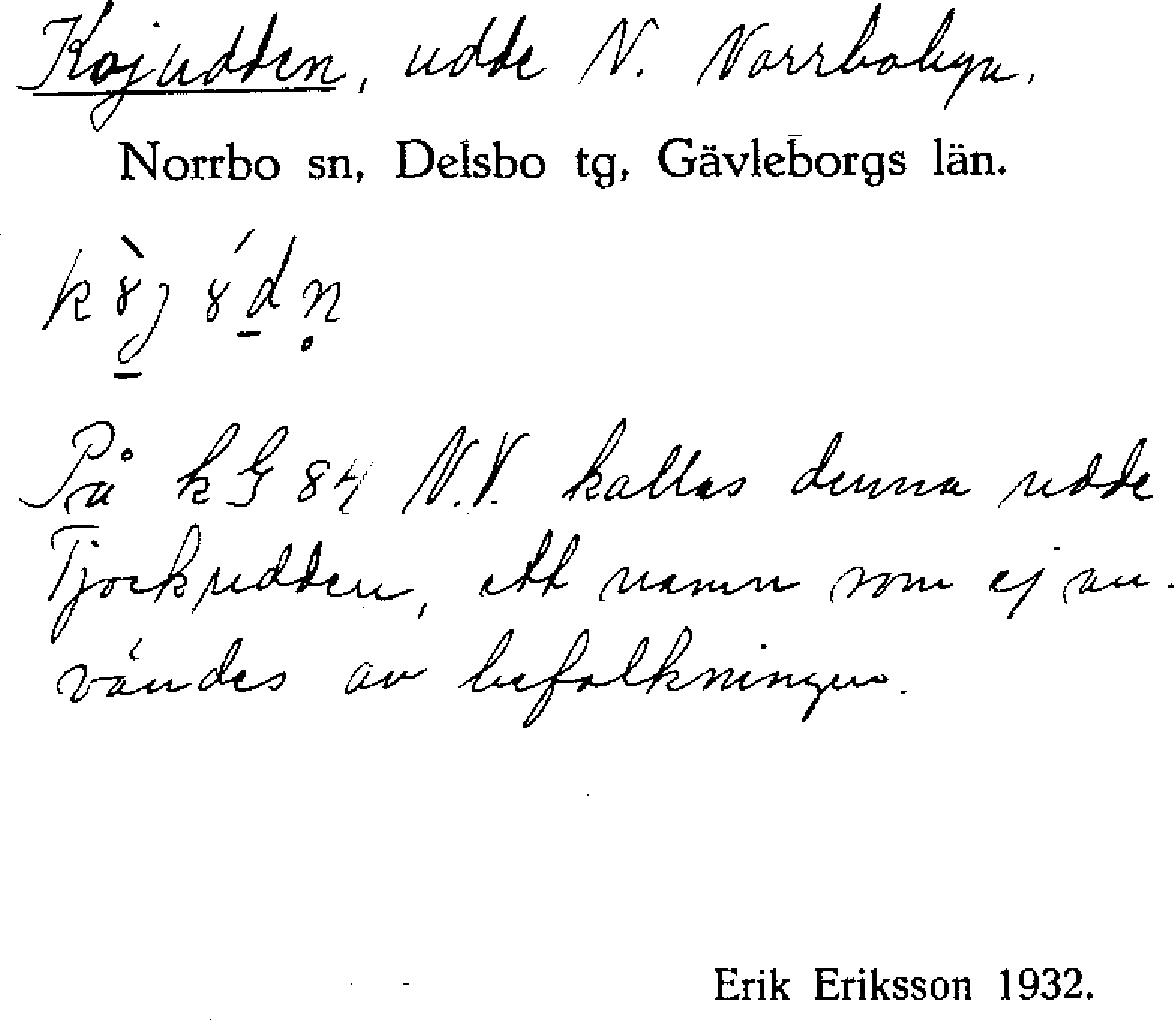 Kojudden, udde N. Norrbobyn.
Norrbo sn, Delsbo tg, Gävleborgs län.
På kG 84 N.V. kallas denna udde
Tjockudden, ett namn som ej an-
vändes av befolkningen.
Erik Eriksson 1932.